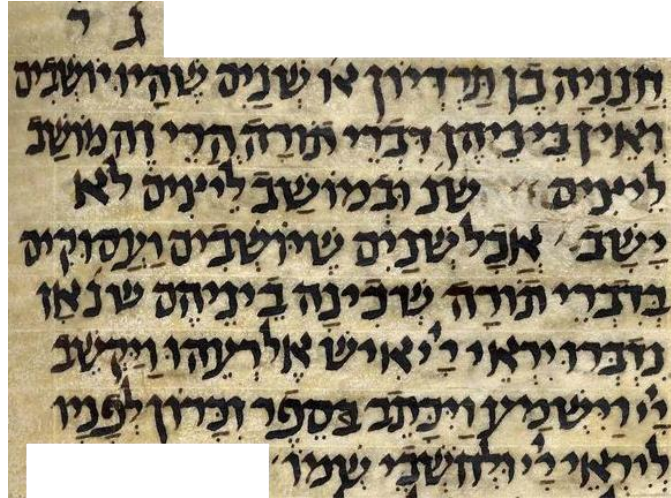 ג ר'
חנניה בן תרדיון או שנים שהיו יושבים
ואין ביניהן דברי תורה הרי זה מושב
ליצים שנ ובמושב ליצים לא
ישב אבל שנים שיושבים ועסוקים
בדברי תורה שכינה ביניהם שנ אז
נדברו יראי יי איש אל רעהו ויקשב
יי וישמע ויכתב בספר זכרון לפניו
ליראי יי ולחשבי שמו